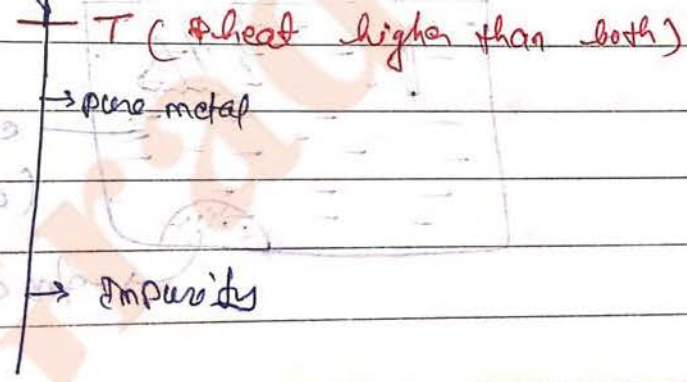 T ( heat higher than both)
→ pure metal
→ Impurity